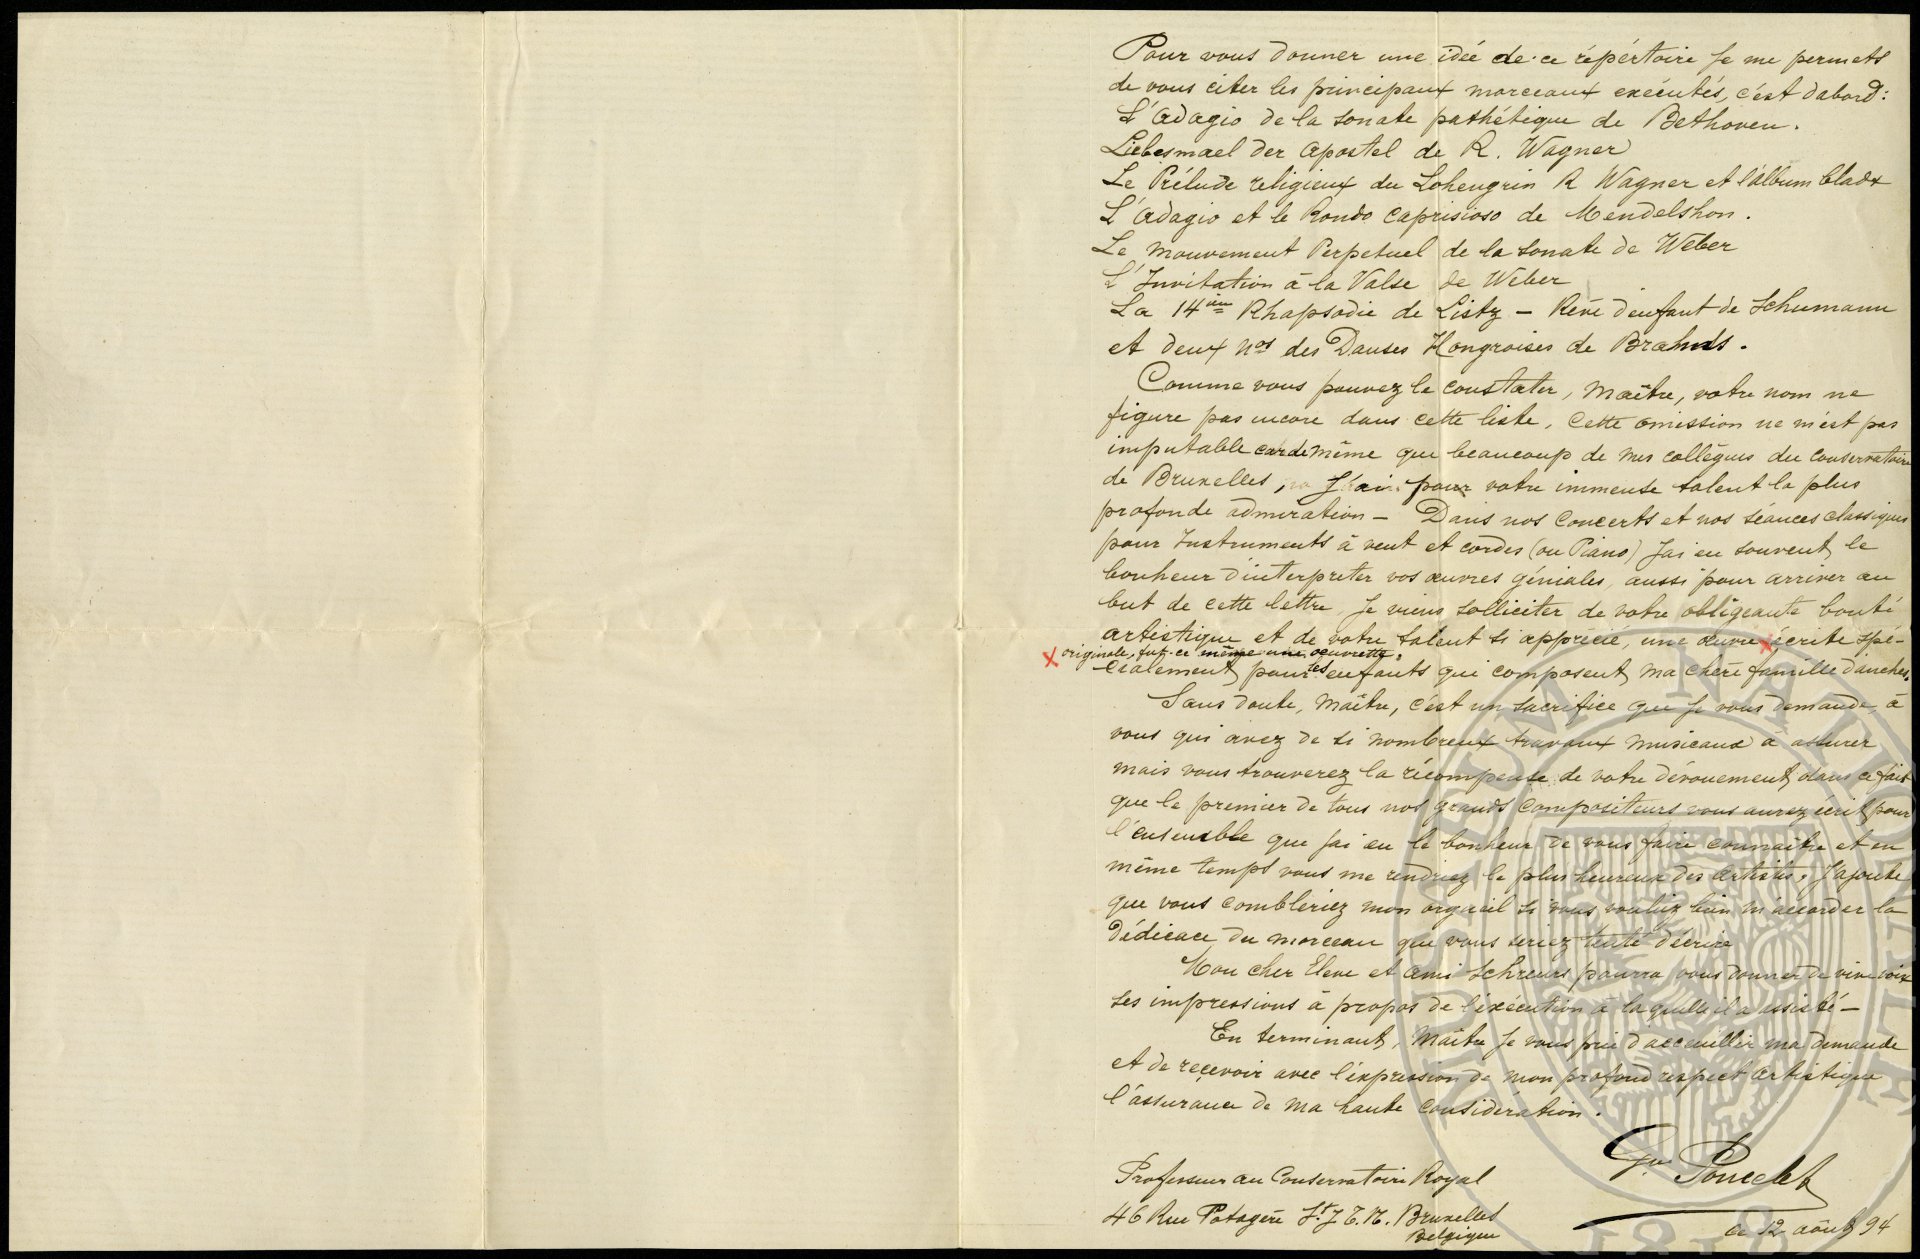 Pour vous donner une idée de ce répértoire je me permets
de vous citer les principaux morceaux exécutés, c'est dabord:
L'Adagio de la sonate pathétique de Bethoven.
Liebesmael der Apostel de R. Wagner
Le Prélude religieux du Lohengrin R Wagner et l'album bladt
L'Adagio et le Rondo Caprisioso de Mendelshon.
Le mouvement Perpetuel de la sonate de Wéber
L'Invitation à la Valse de Wéber
La 14ième Rhapsodie de Listz – Rêve d'enfant de Schumann
et deux nos des Danses Hongroises de Brahms.
Comme vous pouvez le constater, Maître, votre nom ne
figure pas encore dans cette liste, Cette omission ne m'est pas
imputable car de même que beaucoup de mes collègues du conservatoire
de Bruxelles, J'ai pour votre immense talent la plus
profonde admiration – Dans nos Concerts et nos séances classiques
pour Instruments à vent et cordes (ou Piano) J'ai eu souvent le
bonheur d'interpreter vos œuvres géniales, aussi pour arriver au
but de cette lettre, Je viens solliciter de votre obligeante bonté
artistique et de votre talent si apprécié, une œuvre X écrite spé-
X originale, fut-ce même une œuvrette,
cialement pour les enfants qui composent ma chère famille d'anches.
Sans doute, Maître, c'est un sacrifice que je vous demande, à
vous qui avez de si nombreux travaux musicaux à assurer
mais vous trouverez la récompense de votre dévouement dans ce fait
que le premier de tous nos grands compositeurs vous aurez écrit pour
l'ensemble que j'ai eu le bonheur de vous faire connaître et en
même temps vous me rendriez le plus heureux des artistes. J'ajoute
que vous combleriez mon orgueil si vous vouliez bien m'accorder la
dédicace du morceau que vous seriez tenté d'écrire
Mon cher Eleve et ami Schreurs pourra vous donner de vive voix
ses impressions à propos de l'exécution à laquelle il a assisté –
En terminant, Maître je vous prie d'accueillir ma demande
et de reçevoir avec l'expression de mon profond respect artistique
l'assurance de ma haute considération.
Gve Poncelet
Professeur au Conservatoire Royal
46 Rue Potagère St J. T. N. Bruxelles
Belgique
ce 12 août 94
MUSEUM NATIONALE
1818